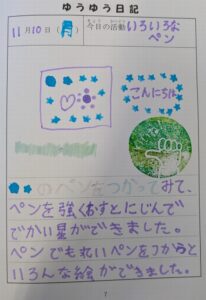 ゆうゆう日記
11月10日(月)
今日の活動
いろいろな
ペン
こんにちは
のペンをつかってみて、
ペンを強くおすとにじんで
でかい星ができました。
ペンでもれいペンをつかうと
いろんな絵ができました。
7